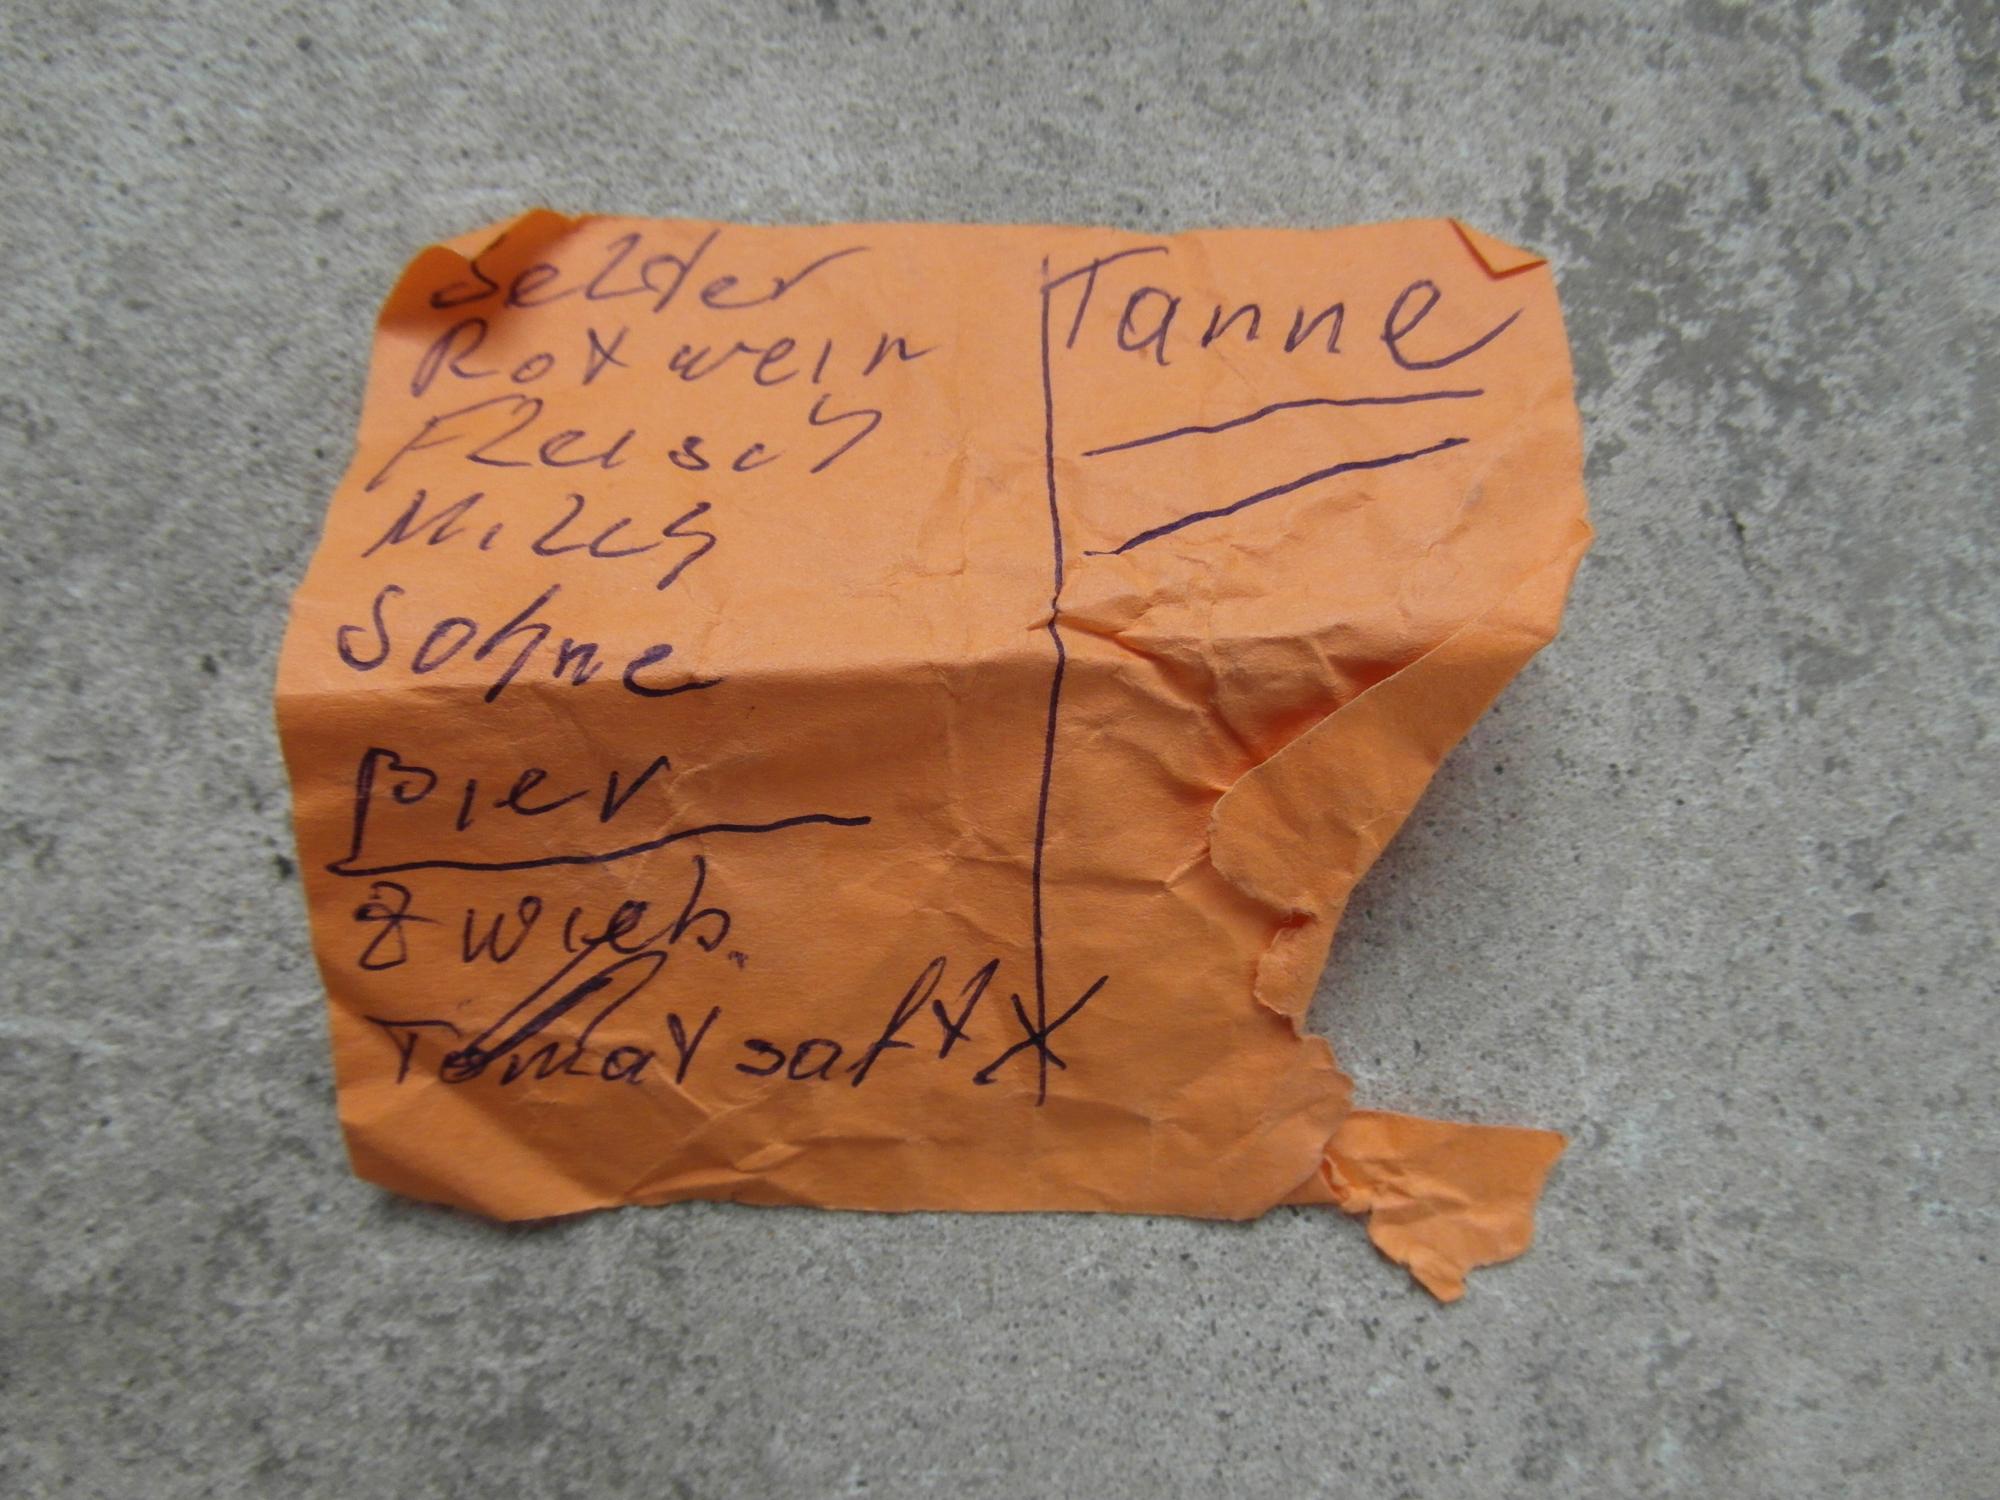 Selter
Rotwein
Fleisch
Milch
Sohne
Bier
Zwieb.
Tomatsaft X
Tanne